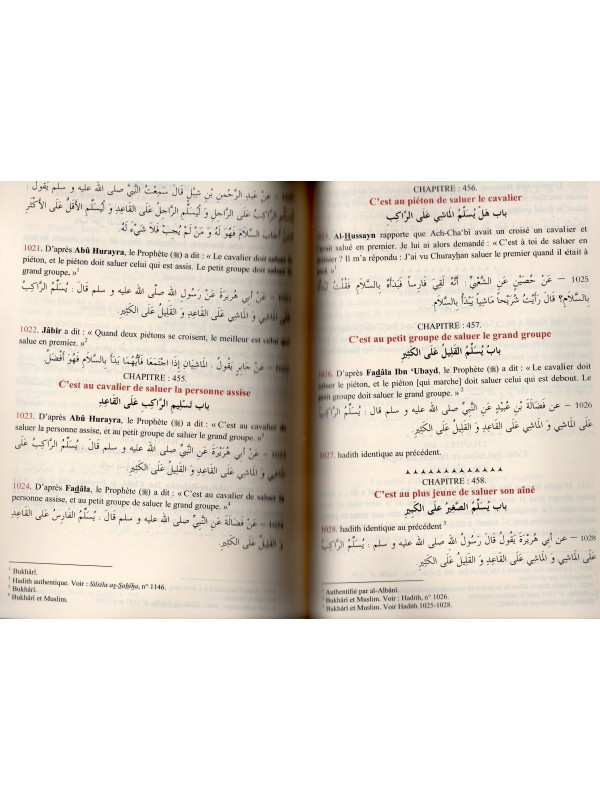 عَنْ عَبْدِ الرَّحْمنِ بْنِ شِبْلٍ قَالَ سَمِعْتُ النَّبِيَّ صلى الله عليه و سلم يَقُولُ :
الرَّاكِبُ عَلَى الرَّاجِلِ وَ لْيُسَلِّمِ الرَّاجِلُ عَلَى القَاعِدِ وَ لْيُسَلِّمِ الأَقَلُّ عَلَى الأَكْثَرِ
أَجَابَ السَّلاَمَ فَهُوَ لَهُ وَ مَنْ لَمْ يُجِبْ فَلاَ شَيْءَ لَهُ
1021. D'après Abû Hurayra, le Prophète (ﷺ) a dit : « Le cavalier doit saluer le
piéton, et le piéton doit saluer celui qui est assis. Le petit groupe doit saluer le
grand groupe. »¹
– عَنْ أَبِي هُرَيْرَةَ عَنْ رَسُولِ اللهِ صلى الله عليه و سلم قَالَ : يُسَلِّمُ الرَّاكِبُ
عَلَى المَاشِي وَ المَاشِي عَلَى القَاعِدِ وَ القَلِيلُ عَلَى الكَثِيرِ
1022. Jâbir a dit : « Quand deux piétons se croisent, le meilleur est celui qui
salue en premier. »²
– عَنْ جَابِرٍ يَقُولُ : المَاشِيَانِ إِذَا اجْتَمَعَا فَأَيُّهُمَا بَدَأَ بِالسَّلاَمِ فَهُوَ أَفْضَلُ
CHAPITRE : 455.
C'est au cavalier de saluer la personne assise
باب تَسْلِيمِ الرَّاكِبِ عَلَى القَاعِدِ
1023. D'après Abû Hurayra, le Prophète (ﷺ) a dit : « C'est au cavalier de
saluer la personne assise, et au petit groupe de saluer le grand groupe. »³
– عَنْ أَبِي هُرَيْرَةَ عَنِ النَّبِيِّ صلى الله عليه و سلم قَالَ : يُسَلِّمُ الرَّاكِبُ عَلَى
المَاشِي وَ المَاشِي عَلَى القَاعِدِ وَ القَلِيلُ عَلَى الكَثِيرِ
1024. D'après Fadâla, le Prophète (ﷺ) a dit : « C'est au cavalier de saluer la
personne assise, et au petit groupe de saluer le grand groupe. »⁴
– عَنْ فَضَالَةَ عَنِ النَّبِيِّ صلى الله عليه و سلم قَالَ : يُسَلِّمُ الفَارِسُ عَلَى القَاعِدِ
وَ القَلِيلُ عَلَى الكَثِيرِ
Bukhârî.
Hadith authentique. Voir : Silsila aṣ-Ṣaḥîḥa, n° 1146.
Bukhârî.
Bukhârî et Muslim.
CHAPITRE : 456.
C'est au piéton de saluer le cavalier
باب هَلْ يُسَلِّمُ المَاشِي عَلَى الرَّاكِبِ
Al-Ḥussayn rapporte que Ach-Cha'bî avait un croisé un cavalier et
salué en premier. Je lui ai alors demandé : « C'est à toi de saluer en
premier ? Il m'a répondu : J'ai vu Churayḥan saluer le premier quand il était à
1025 – عَنْ حُصَيْنٍ عَنِ الشَّعْبِيِّ : أَنَّهُ لَقِيَ فَارِساً فَبَدَأَهُ بِالسَّلاَمِ فَقُلْتُ
بِالسَّلاَمِ؟ قَالَ رَأَيْتُ شُرَيْحاً مَاشِياً يَبْدَأُ بِالسَّلاَمِ.
CHAPITRE : 457.
C'est au petit groupe de saluer le grand groupe
بَابُ يُسَلِّمُ القَلِيلُ عَلَى الكَثِيرِ
1026. D'après Faḍâla Ibn 'Ubayd, le Prophète (ﷺ) a dit : « Le cavalier doit
saluer le piéton, et le piéton [qui marche] doit saluer celui qui est debout. Le
petit groupe doit saluer le grand groupe. »²
1026 – عن فَضَالَةَ بْنِ عُبَيْدٍ عَنِ النَّبِيِّ صلى الله عليه و سلم قَالَ : يُسَلِّمُ الرَّاكِبُ
عَلَى المَاشِي وَ المَاشِي عَلَى القَاعِدِ وَ القَلِيلُ عَلَى الكَثِيرِ.
1027. hadith identique au précédent.
CHAPITRE : 458.
C'est au plus jeune de saluer son aîné
باب يُسَلِّمُ الصَّغِيرُ عَلَى الكَبِيرِ
1028. hadith identique au précédent³
1028 – عن أبي هُرَيْرَةَ يَقُولُ قَالَ رَسُولُ اللهِ صلى الله عليه و سلم : يُسَلِّمُ الرَّاكِبُ
عَلَى المَاشِي وَ المَاشِي عَلَى القَاعِدِ وَ القَلِيلُ عَلَى الكَثِيرِ
¹ Authentifié par al-Albânî.
² Bukhârî et Muslim. Voir : Hadith, n° 1026.
³ Bukhârî et Muslim. Voir Hadith 1025-1028.